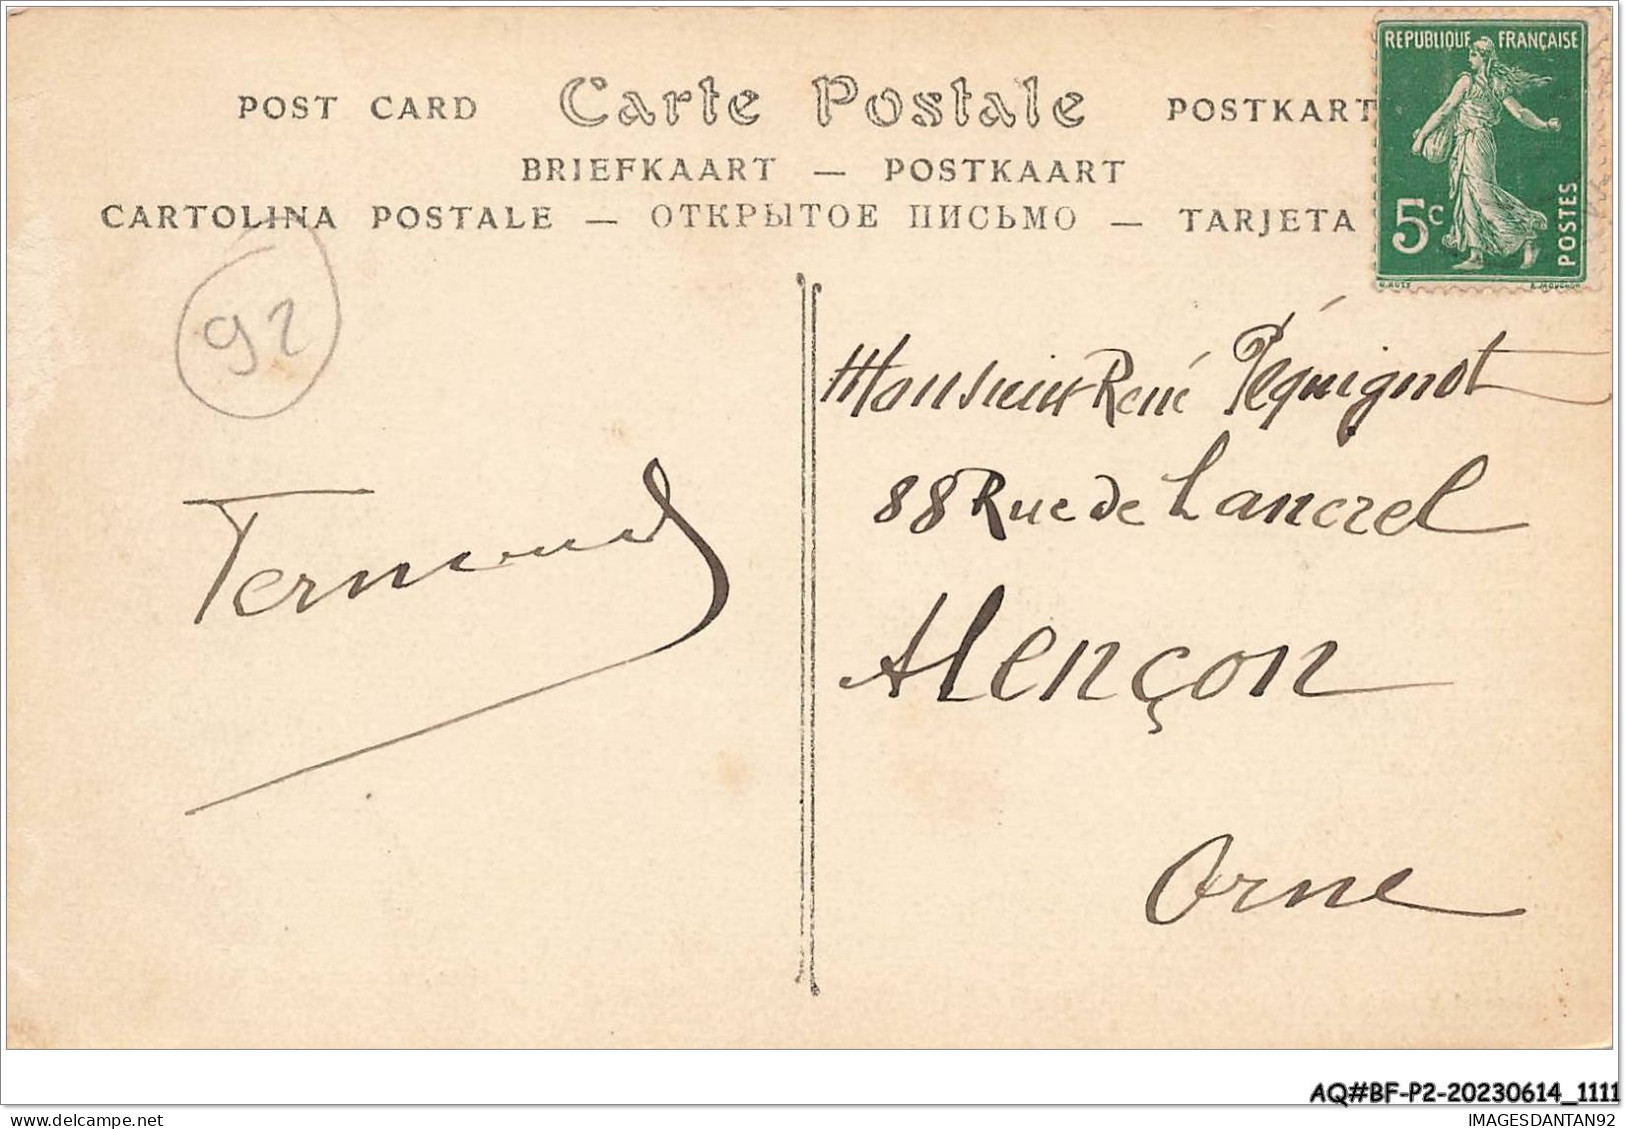 POST CARD Carte Postale POSTKART
BRIEFKAART — POSTKAART
CARTOLINA POSTALE — ОТКРЫТОЕ ПИСЬМО — TARJETA
REPUBLIQUE FRANÇAISE
5c
POSTES
92
Monsieur René Péquignot
88 Rue de Lancrel
Fernand
Alençon
Orne
AQ#BF-P2-20230614_1111
IMAGESDANTAN92